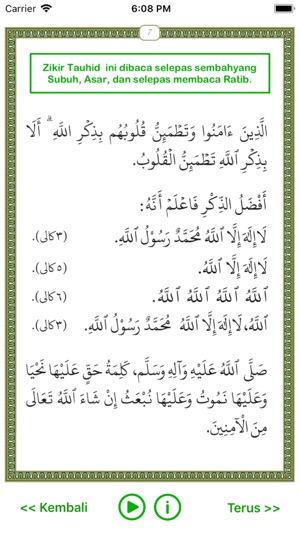 Carrier 6:08 PM
7
Zikir Tauhid ini dibaca selepas sembahyang
Subuh, Asar, dan selepas membaca Ratib.
الَّذِينَ ءَامَنُوا وَتَطْمَئِنُّ قُلُوبُهُم بِذِكْرِ اللَّهِ ۗ أَلَا
بِذِكْرِ ٱللَّهِ تَطْمَئِنُّ الْقُلُوبُ.
أَفْضَلُ الذِّكْرِ فَاعْلَمْ أَنَّهُ:
لَاإِلٰهَ إِلَّا ٱللَّهُ مُحَمَّدٌ رَسُوْلُ اللَّهِ. (٣ كالي).
لَاإِلٰهَ إِلَّا ٱللَّهُ. (٥ كالي).
ٱللَّهُ ٱللَّهُ ٱللَّهُ ٱللَّهُ. (٦ كالي).
ٱللَّهُ، لَاإِلٰهَ إِلَّا ٱللَّهُ مُحَمَّدٌ رَسُوْلُ ٱللَّهِ. (٣ كالي).
صَلَّى ٱللَّهُ عَلَيْهِ وَآلِهِ وَسَلَّم، كَلِمَةُ حَقٍّ عَلَيْهَا نَحْيَا
وَعَلَيْهَا نَمُوتُ وَعَلَيْهَا نُبْعَثُ إِنْ شَاءَ ٱللَّهُ تَعَالَى
مِنَ الْآمِنِينَ.
<< Kembali i Terus >>